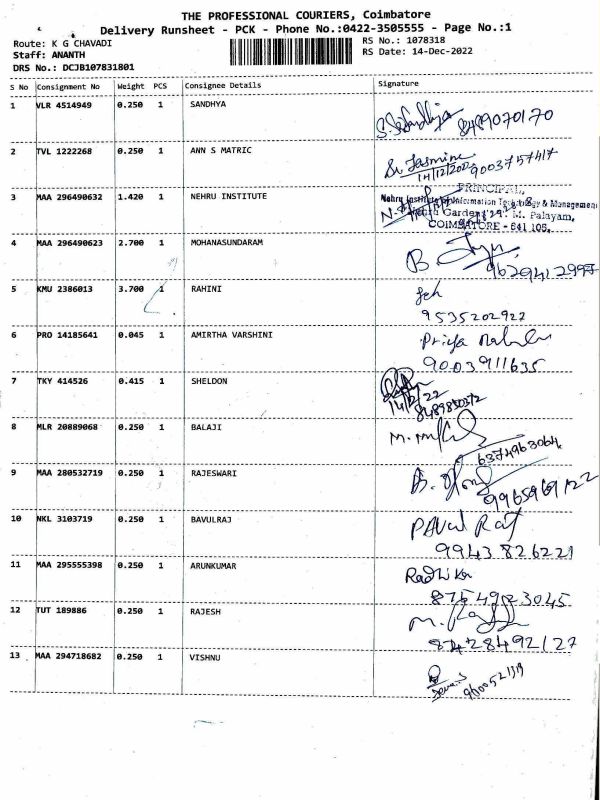 THE PROFESSIONAL COURIERS, Coimbatore
Delivery Runsheet - PCK - Phone No.:0422-3505555 - Page No.:1
Route: K G CHAVADI
RS No.: 1078318
Staff: ANANTH
RS Date: 14-Dec-2022
DRS No.: DCJB107831801
S No Consignment No Weight PCS Consignee Details Signature
1 VLR 4514949 0.250 1 SANDHYA
8489070170
2 TVL 1222268 0.250 1 ANN S MATRIC
Jasmine
14/12/2022 9003757417
3 MAA 296490632 1.420 1 NEHRU INSTITUTE
PRINCIPAL,
Nehru Institute of Information Technology & Management
Nehru Gardens, T. M. Palayam,
COIMBATORE - 641 105.
4 MAA 296490623 2.700 1 MOHANASUNDARAM
B.
9629412997
5 KMU 2386013 3.700 1 RAHINI
9535202922
6 PRO 14185641 0.045 1 AMIRTHA VARSHINI
Priya
9003911635
7 TKY 414526 0.415 1 SHELDON
14/12/22
8489850372
8 MLR 20889068 0.250 1 BALAJI
6374963064
9 MAA 280532719 0.250 1 RAJESWARI
9965969122
10 NKL 3103719 0.250 1 BAVULRAJ
PAVul Raj
9943826221
11 MAA 295555398 0.250 1 ARUNKUMAR
Radhika
8754923045
12 TUT 189886 0.250 1 RAJESH
8428492127
13 MAA 294718682 0.250 1 VISHNU